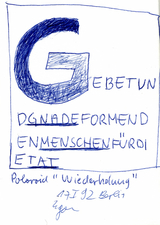 GEBETUN
DGNADEFORMEND
ENMENSCHENFÜRDI
ETAT
Polaroid "Wiederholung"
17 I 92 Berlin